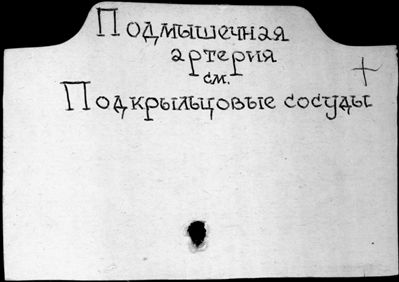 Подмышечная
артерия
см.
Подкрыльцовые сосуды